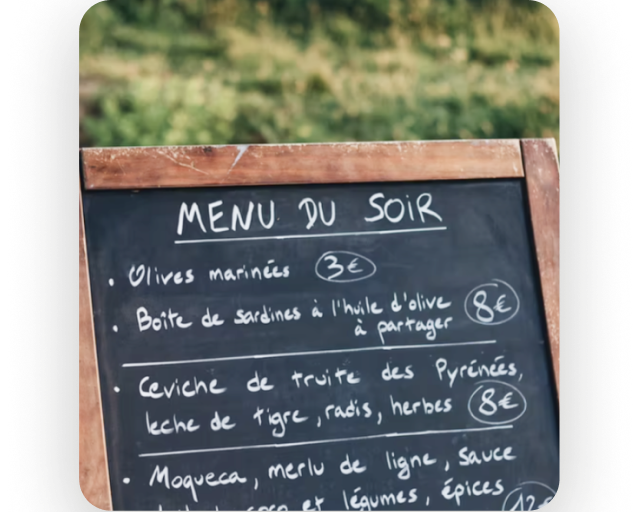 MENU DU SOIR
• Olives marinées 3€
• Boîte de sardines à l'huile d'olive
à partager 8€
• Ceviche de truite des Pyrénées,
leche de tigre, radis, herbes 8€
• Moqueca, merlu de ligne, sauce
et légumes, épices